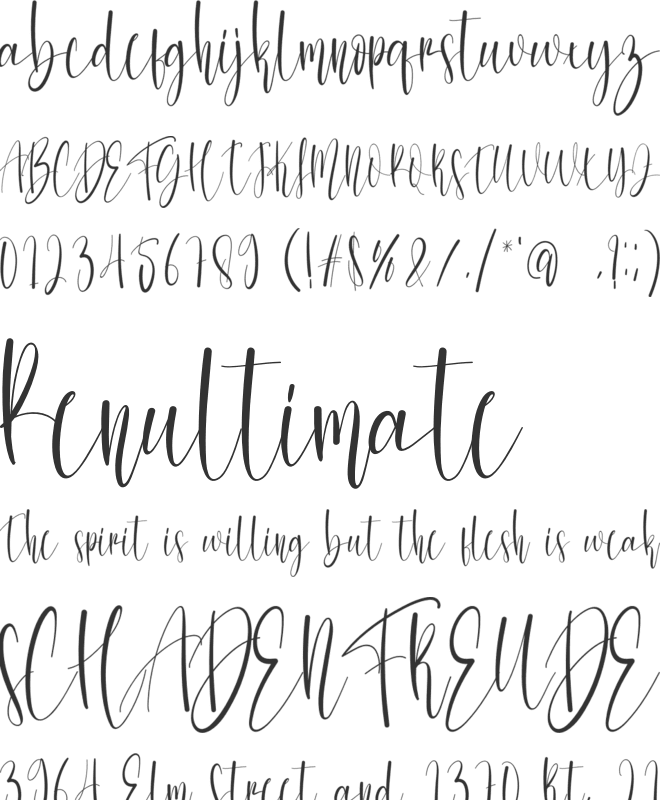 abcdefghijklmnopqrstuvwxyz
ABCDEFGHIJKLMNOPQRSTUVWXYZ
0123456789 (!#$%&/./*'@ .!:;)
Penultimate
The spirit is willing but the flesh is weak
SCHADENFREUDE
3964 Elm Street and 1370 Rt. 21